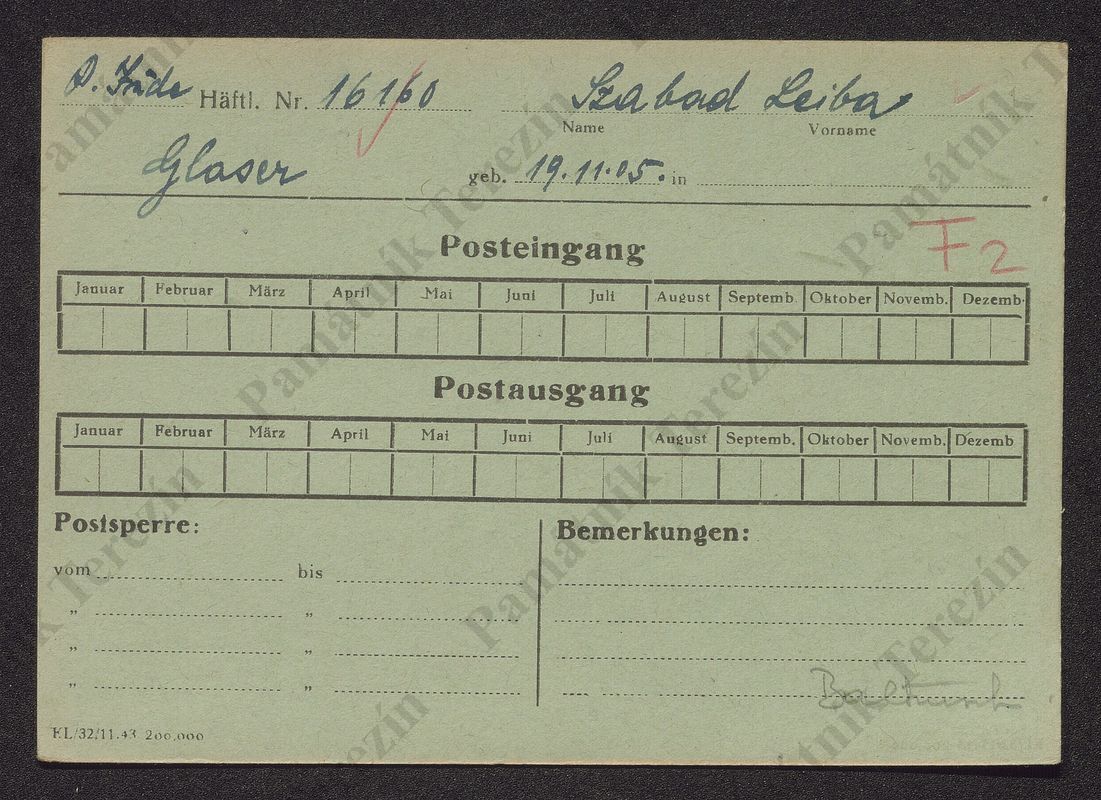 P. Jude Häftl. Nr. 16160 Szabad Leiba
Name Vorname
Glaser geb. 19.11.05. in
F2
Posteingang
Januar Februar März April Mai Juni Juli August Septemb. Oktober Novemb. Dezemb.
Postausgang
Januar Februar März April Mai Juni Juli August Septemb. Oktober Novemb. Dezemb
Postsperre: Bemerkungen:
vom bis
„ „
„ „
„ „
KL/32/11.43 200.000
Památník Terezín